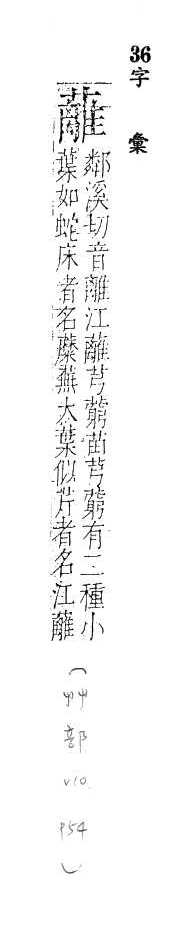 36字彙
蘺
鄰溪切音離江蘺芎藭苗芎藭有二種小
葉如蛇床者名蘪蕪大葉似芹者名江蘺
(艸部 V10. P54)